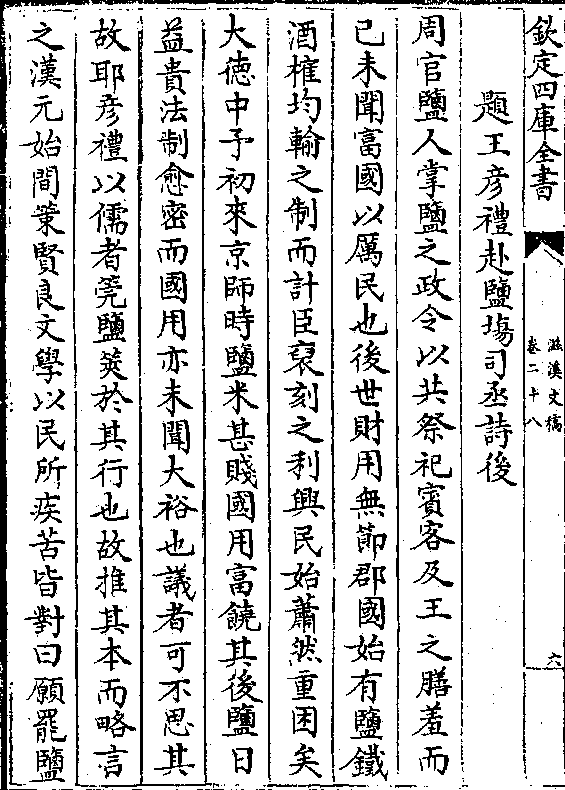 欽定四庫全書
滋溪文稿
卷二十八
六
題王彦禮赴鹽場司丞詩後
周官鹽人掌鹽之政令以共祭祀賓客及王之膳羞而
已未聞富國以厲民也後世財用無節郡國始有鹽鐵
酒榷均輸之制而計臣裒刻之利興民始蕭然重困矣
大德中予初來京師時鹽米甚賤國用富饒其後鹽日
益貴法制愈密而國用亦未聞大裕也議者可不思其
故耶彦禮以儒者筦鹽筴於其行也故推其本而略言
之漢元始間策賢良文學以民所疾苦皆對曰願罷鹽